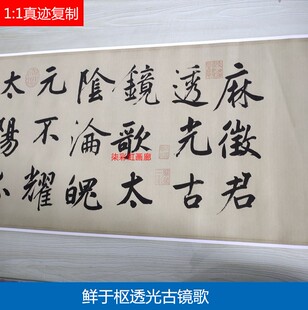 1:1真迹复制
麻徵君
透光古
鏡歌太
陰淪魄
元不耀
太陽
柒彩虹画廊
鲜于枢透光古镜歌